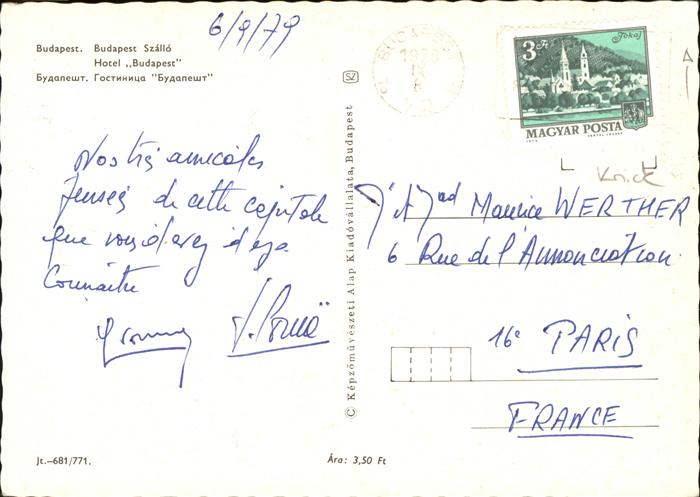 6/9/79
Budapest. Budapest Szálló
Hotel „Budapest"
Будапешт. Гостиница "Будапешт"
SZ
BUDAPEST
3 Ft
Tokaj
MAGYAR POSTA
Nos très amicales
pensées de cette capitale
que vous devez déjà
connaître
© Képzőművészeti Alap Kiadóvállalata, Budapest
Maurice WERTHER
6 Rue de l'Annonciation
16e PARIS
FRANCE
Jt.–681/771.
Ára: 3,50 Ft